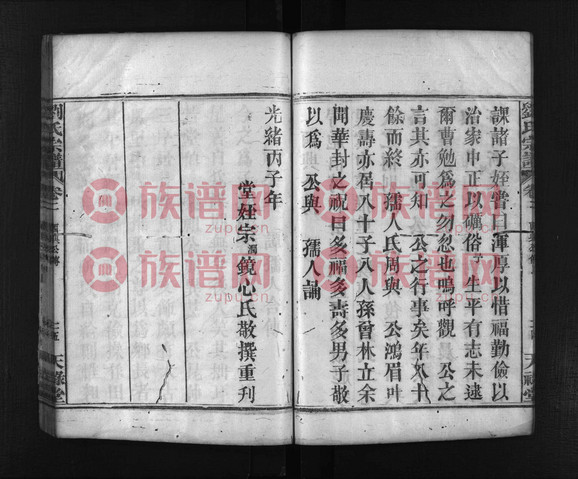 課諸子姪嘗曰渾厚以惜福勤儉以
治家中正以礪俗 生平有志未逮
爾曹勉為之勿忽也嗚呼觀 公之
言其亦可知 公之行事矣年八十
餘而終 孺人氏周與 公鴻眉叶
慶壽亦居八十子八人孫曾林立余
聞華封之祝曰多福多壽多男子敬
以為 公與 孺人誦
光緒丙子年
堂姪宗潤鏡心氏敬撰重刊
劉氏宗譜
天祿堂
族谱网
zupu.cn